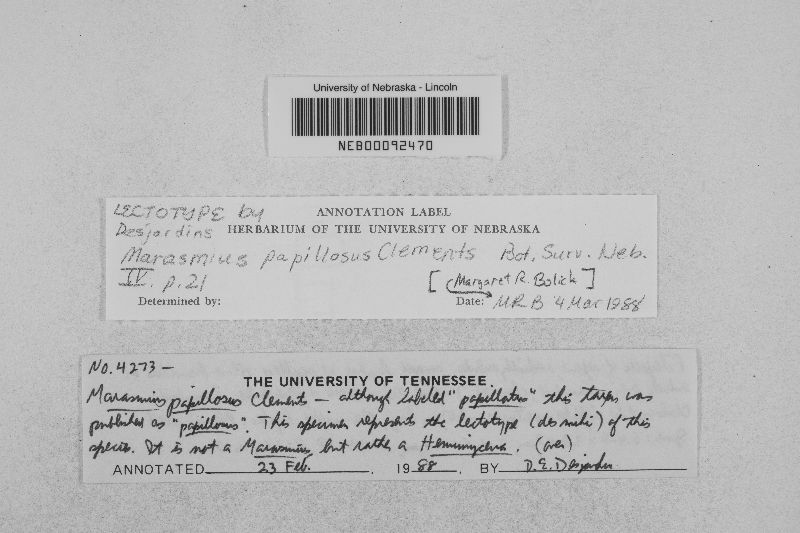 University of Nebraska - Lincoln
NEB00092470
LECTOTYPE by
Desjardins
ANNOTATION LABEL
HERBARIUM OF THE UNIVERSITY OF NEBRASKA
Marasmius papillosus Clements Bot. Surv. Neb.
IV. p.21
[Margaret R. Bolick]
Determined by:
Date: MRB 4 Mar 1988
No. 4273 -
THE UNIVERSITY OF TENNESSEE
Marasmius papillosus Clements - although labeled "papillatus" this taxon was
published as "papillosus". This specimen represents the lectotype (des mihi) of this
species. It is not a Marasmius but rather a Hemimycena. (over)
ANNOTATED 23 Feb. 1988, BY D.E. Desjardin